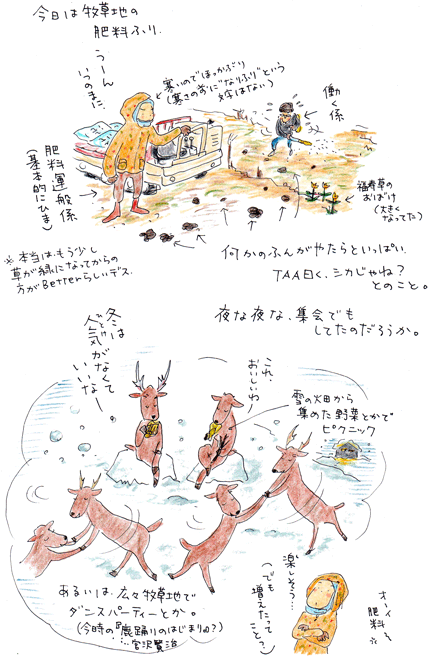 今日は牧草地の
肥料ふり。
うーん
いつのまに、
寒いのでほっかぶり
(寒さの前に"なりふり"という
文字はない)
働く係
肥料運搬係
(基本的にひま)
福寿草の
おばけ
(大きく
なってた)
※本当は、もう少し
草が緑になってからの
方がBetterらしいデス。
何かのふんがやたらといっぱい。
TAA曰く、シカじゃね?
とのこと。
夜な夜な、集会でも
してたのだろうか。
冬は
人気がなくて
いいな~
これ、
おいしいわ
雪の畑から
集めた野菜とかで
ピクニック
あるいは、広々牧草地で
ダンスパーティーとか。
(今時の『鹿踊りのはじまり』?)
…宮沢賢治
楽しそう…
(でも
増えたって
こと?)
オーイ
肥料~